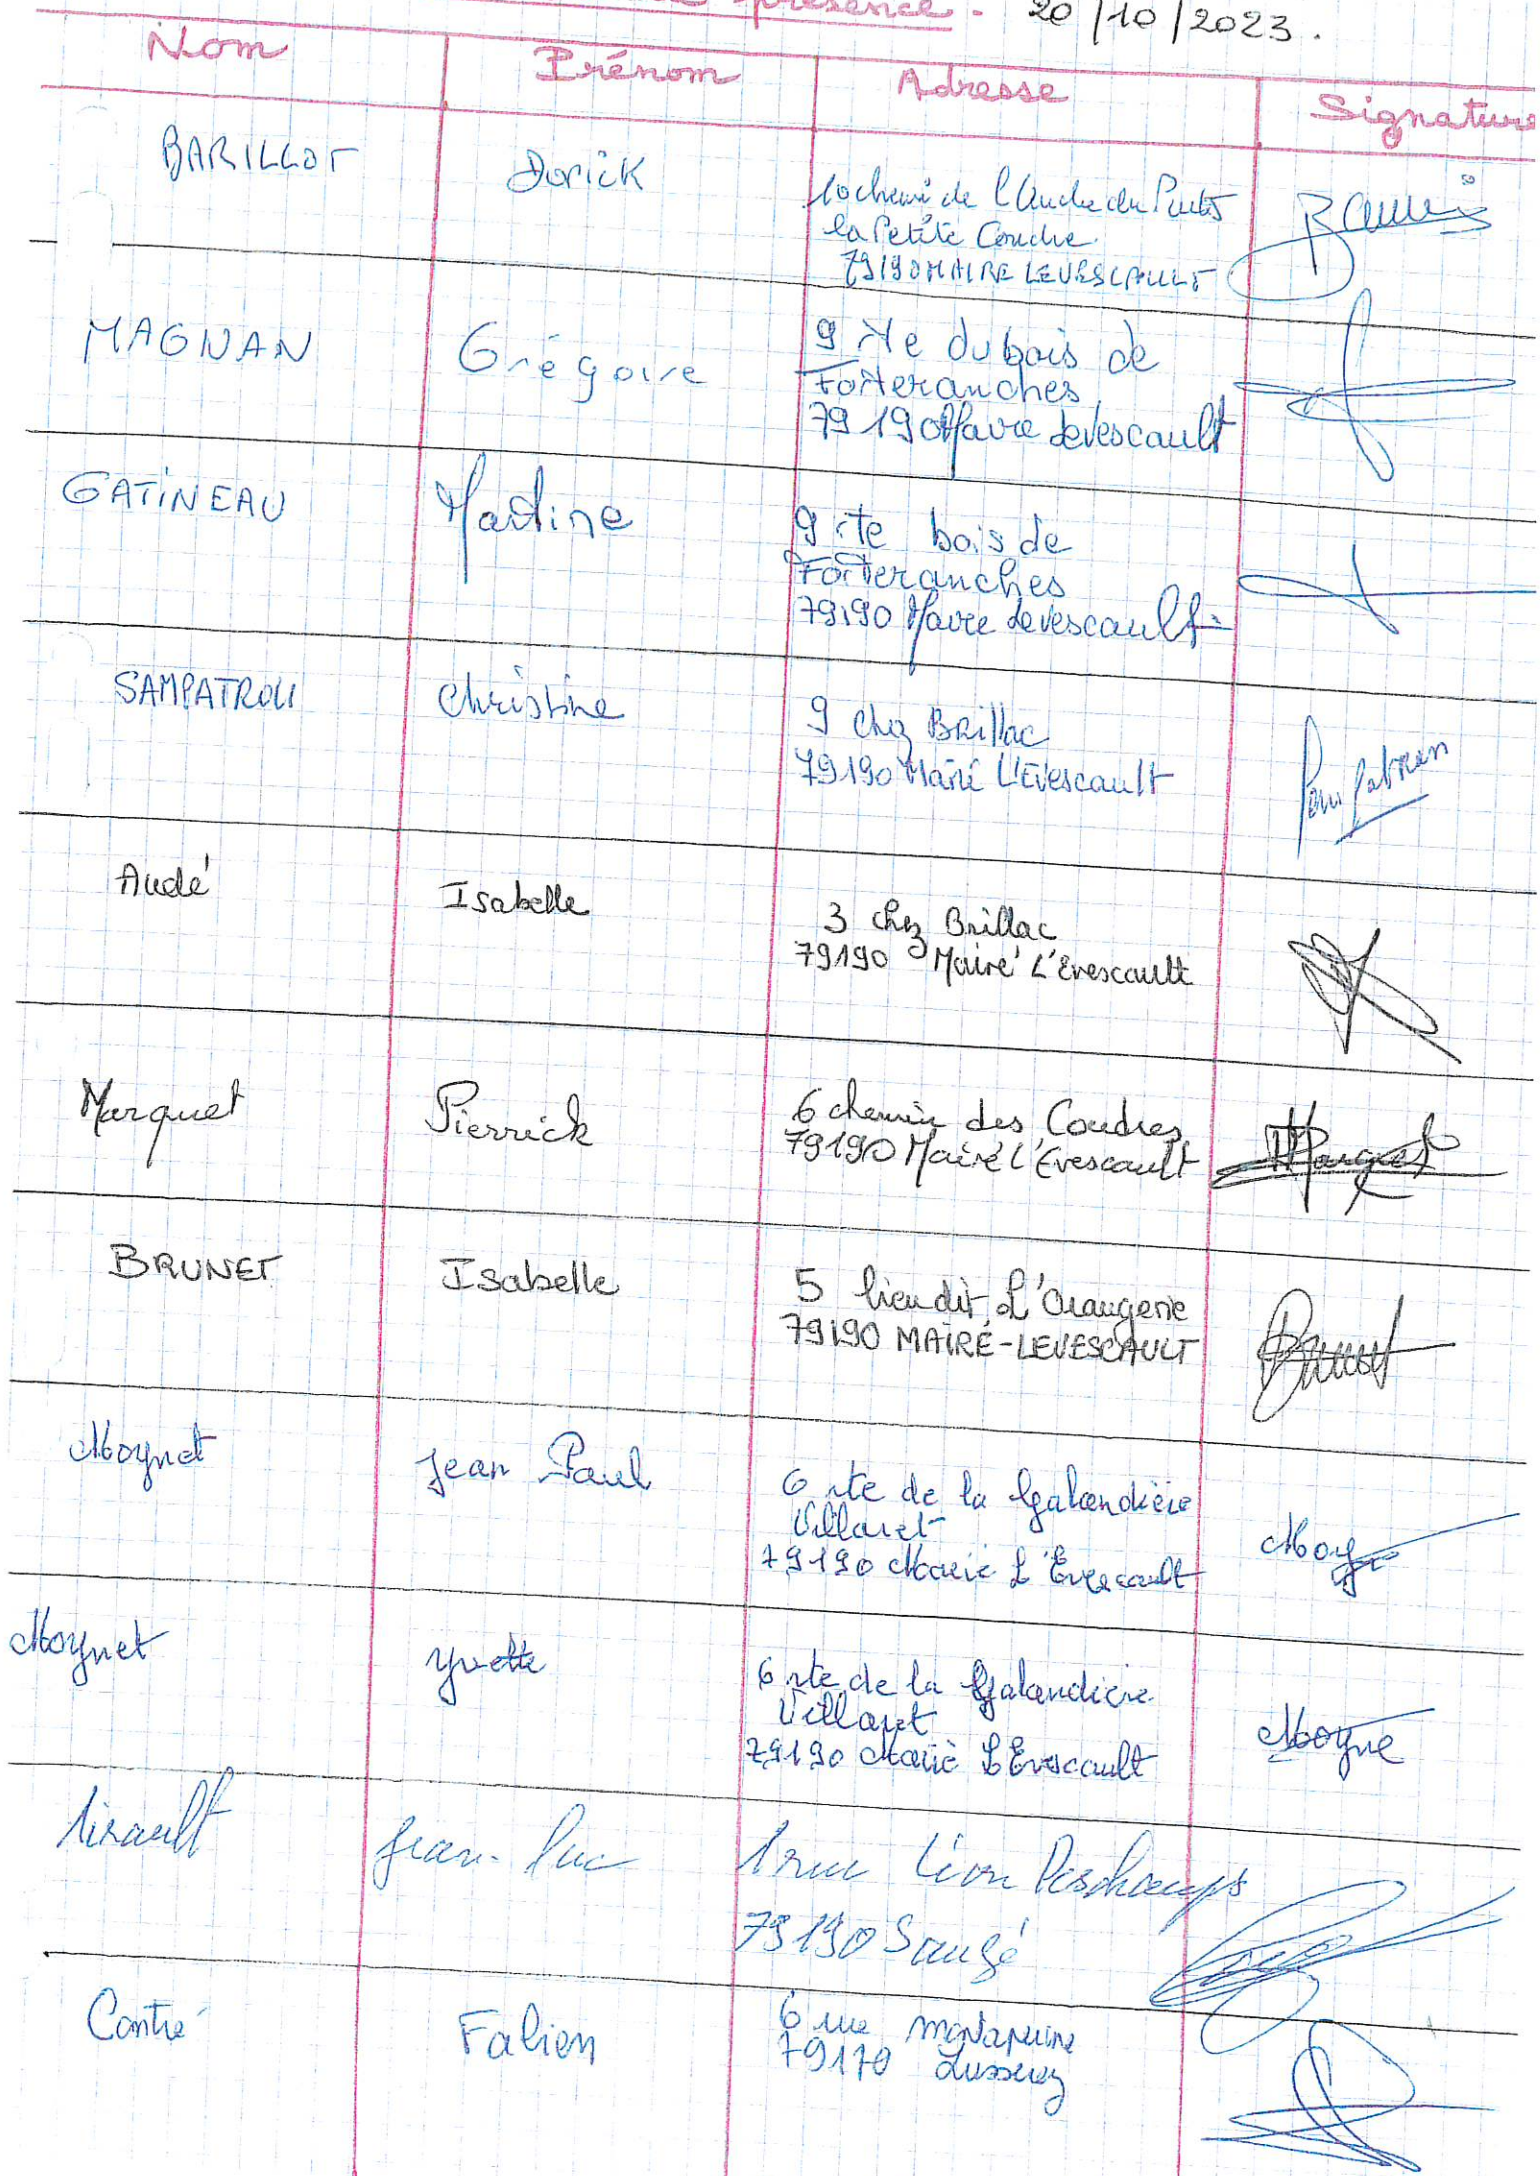 présence. 20/10/2023.
Nom Prénom Adresse Signature
BARILLOT Dorick
10 chemin de l'Ouche du Puits
la Petite Coudre
79190 MAIRE LEVESCAULT
MAGNAN Grégoire 9 rte du bois de
Foiteranches
79190 Maire Levescault
GATINEAU Martine 9 rte bois de
Foiteranches
79190 Maire Levescault
SAMPATROU Christine 9 chez Brillac
79190 Mairé L'Evescault
Audé Isabelle 3 chez Brillac
79190 Mairé L'Evescault
Marquet Pierrick 6 chemin des Coudres Marquet
79190 Mairé L'Evescault
BRUNET Isabelle 5 lieu dit L'Orangerie Brunet
79190 MAIRÉ-LEVESCAULT
Moynet Jean Paul 6 rte de la Galandière
Villaret
79190 Mairie L'Evescault
Moynet Yvette 6 rte de la Galandière
Villaret
79190 Mairie L'Evescault
Airault Jean-Luc 1 rue Léon Deschamps
79190 Sauzé
Contré Fabien 6 rue
79170